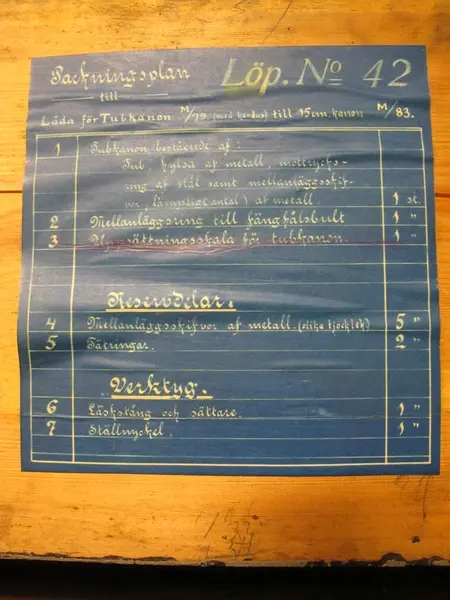 Packningsplan Löp. No 42
till
Låda för Tubkanon M/79 (med kardus) till 15 cm. kanon M/83.
1 Tubkanon, bestående af:
Tub, hylsa af metall, mottrycks-
ring af stål samt mellanläggsskif-
vor, (lämpligt antal) af metall. 1 st.
2 Mellanläggsring till fänghålsbult 1 "
3 Uppsättningsskala för tubkanon. 1 "
Reservdelar.
4 Mellanläggsskifvor af metall. (olika tjocklek) 5 "
5 Tätringar. 2 "
Verktyg.
6 Läskstång och sättare. 1 "
7 Ställnyckel. 1 "